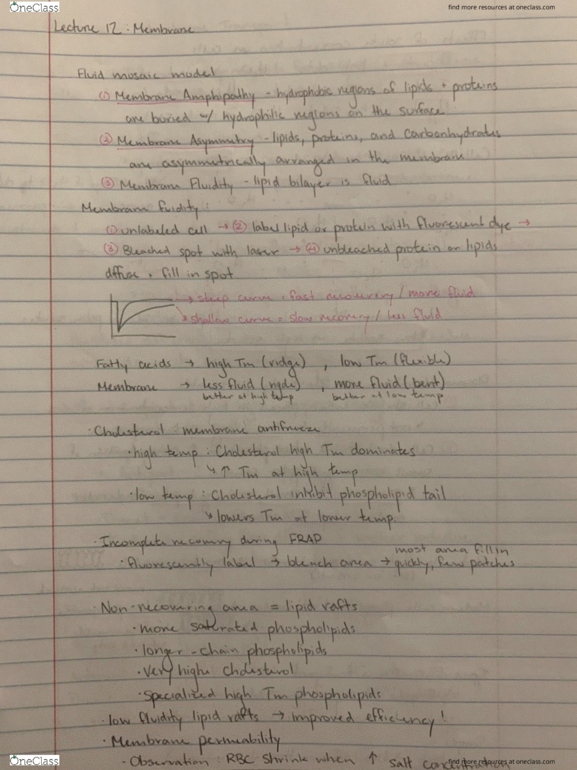 OneClass
find more resources at oneclass.com
Lecture 12: Membrane
Fluid mosaic model
① Membrane Amphipathy - hydrophobic regions of lipids + proteins
are buried w/ hydrophilic regions on the surface
② Membrane Asymmetry - lipids, proteins, and carbohydrates
are asymmetrically arranged in the membrane
③ Membrane Fluidity - lipid bilayer is fluid
Membrane fluidity:
① unlabeled cell → ② label lipid or protein with fluorescent dye →
③ Bleached spot with laser → ④ unbleached protein or lipids
diffuse + fill in spot
→ steep curve = fast recovery / more fluid
→ shallow curve = slow recovery / less fluid
Fatty acids → high Tm (ridge), low Tm (flexible)
Membrane → less fluid (rigde), more fluid (bent)
better at high temp better at low temp
· Cholesterol membrane antifreeze
· high temp: Cholesterol high Tm dominates
↳ ↑ Tm at high temp
· low temp: Cholesterol inhibit phospholipid tail
↳ lowers Tm at lower temp
· Incomplete recovery during FRAP
most area fill in
· fluorescently label → bleach area → quickly, few patches
· Non-recovering area = lipid rafts
· more saturated phospholipids
· longer-chain phospholipids
· very high cholesterol
· specialized high Tm phospholipids
· low fluidity lipid rafts → improved efficiency!
· Membrane permeability
· Observation: RBC shrink when ↑ salt concentration
OneClass
find more resources at oneclass.com